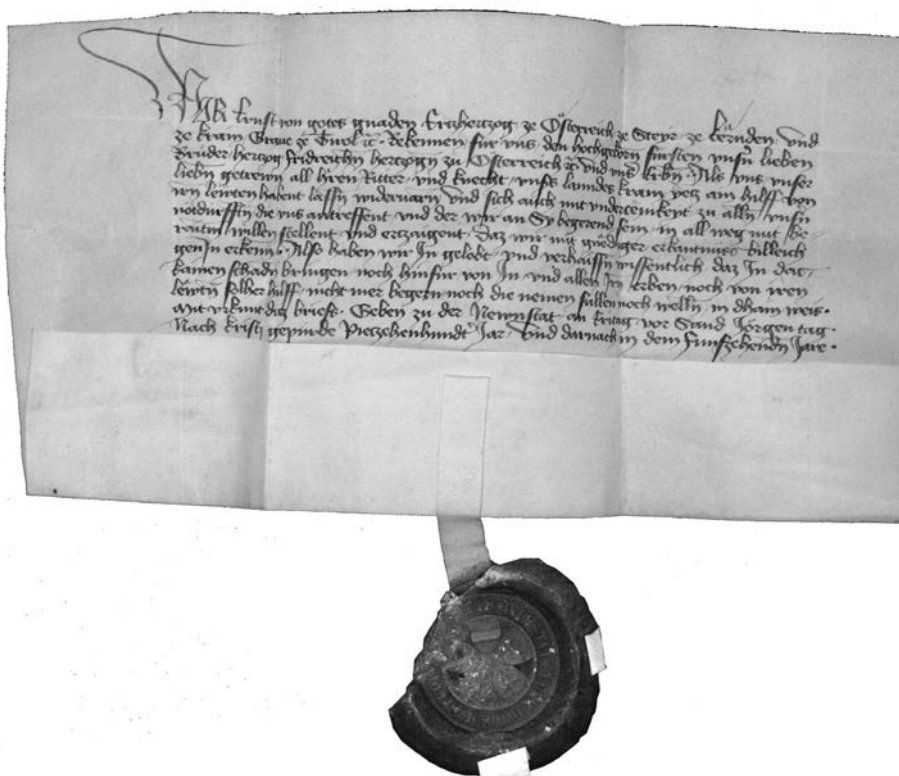 WIR Ernst von gotes gnaden Erczherczog ze Österreich ze Steyr ze kërnden vnd
ze krain Graue ze Tyrol etc. Bekennen für vns den hochgeborn fürsten vnsern lieben
Brůder herczog fridreichn herczogn zu Österreich etc. vnd vnser Erbn. Als vns vnser
liebn getrewn all hřren Ritter vnd knecht vnsers lanndes krain yecz ain hilff von
irn lewten habent lassn wideruarn vnd sich auch mit vndertenikeyt zu alln vnsern
notdurfftn die vns antreffent vnd der wir an Sy begerend sein in all weg mit be-
raitm willen stellent vnd erczaigent. Daz wir mit gnediger erkantnuss billeich
gen In erkenn. Also haben wir In gelobt vnd verhaissn wissentlich daz In daz
kainen schadn bringen noch hinfür von In vnd allen irn Erben noch von iren
lewtn solher hilff nicht mer begern noch die nemen süllen noch welln in dhain weis.
Mit vrkund dicz briefs. Geben zu der Newnstat an fritag vor Sand Jörgen tag.
Nach kristi gepurde vierczehenhundert Jar vnd darnach in dem fünfczehendn Jare.